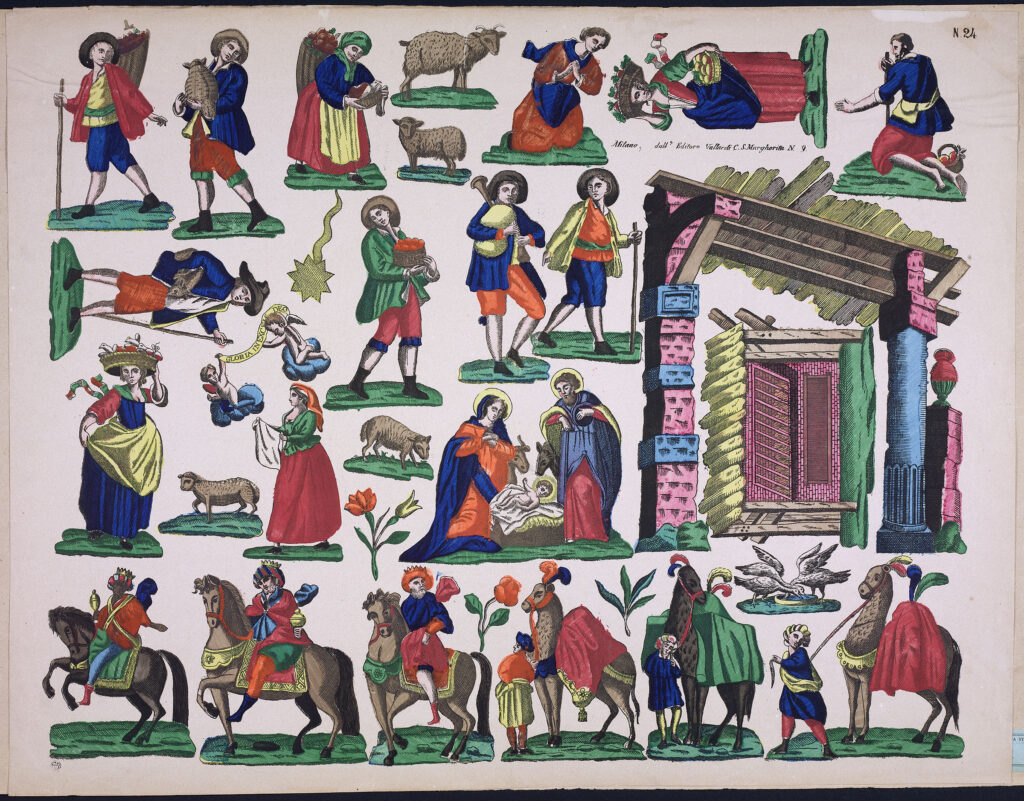 N. 24
Milano, dall'º Editore Vallardi C. S. Margherita N. 9
GLORIA IN